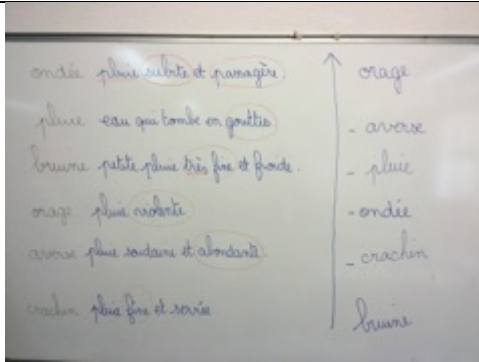 ondée pluie subite et passagère
pluie eau qui tombe en gouttes
bruine petite pluie très fine et froide.
orage pluie violente
averse pluie soudaine et abondante
crachin pluie fine et serrée
orage
- averse
- pluie
- ondée
- crachin
bruine